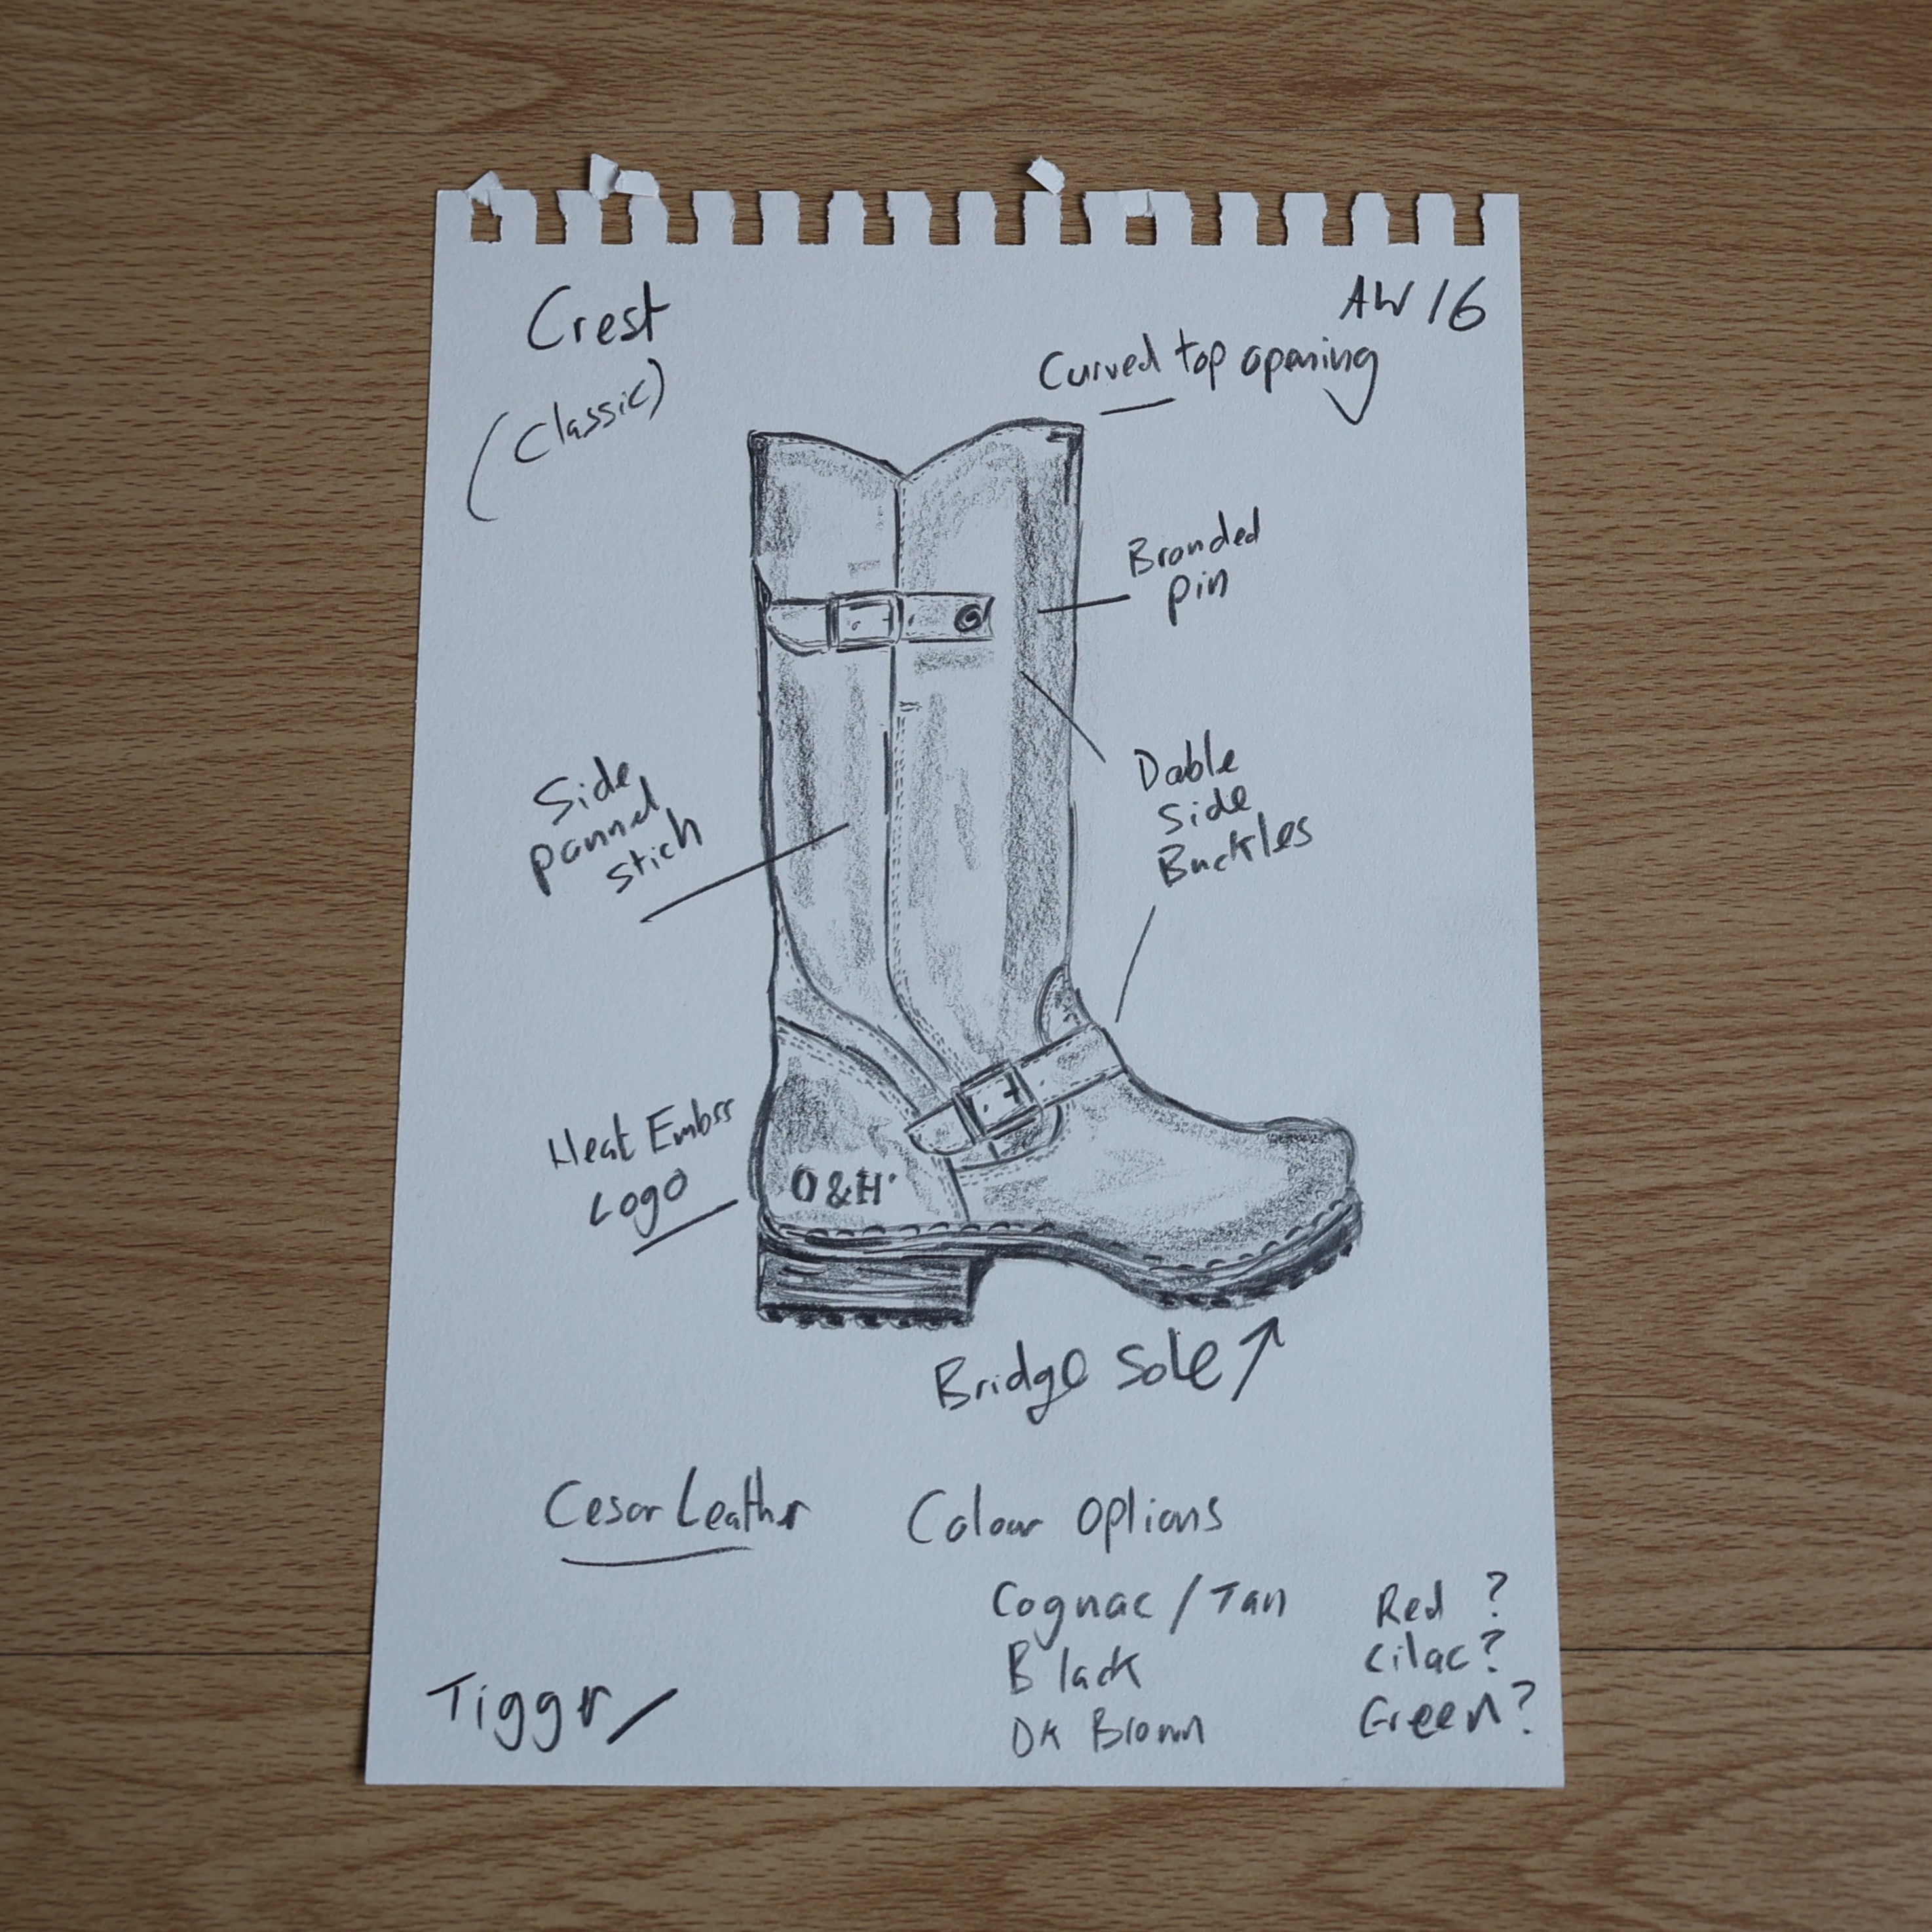 Crest
(Classic)
AW 16
Curved top opening
Branded
pin
Dable
Side
Buckles
Side
pannel
stich
Heat Embss
Logo
O & H
Bridge Sole
Cesar Leather
Colour Options
Cognac / Tan
Black
DK Brown
Red ?
Lilac?
Green?
Tigger